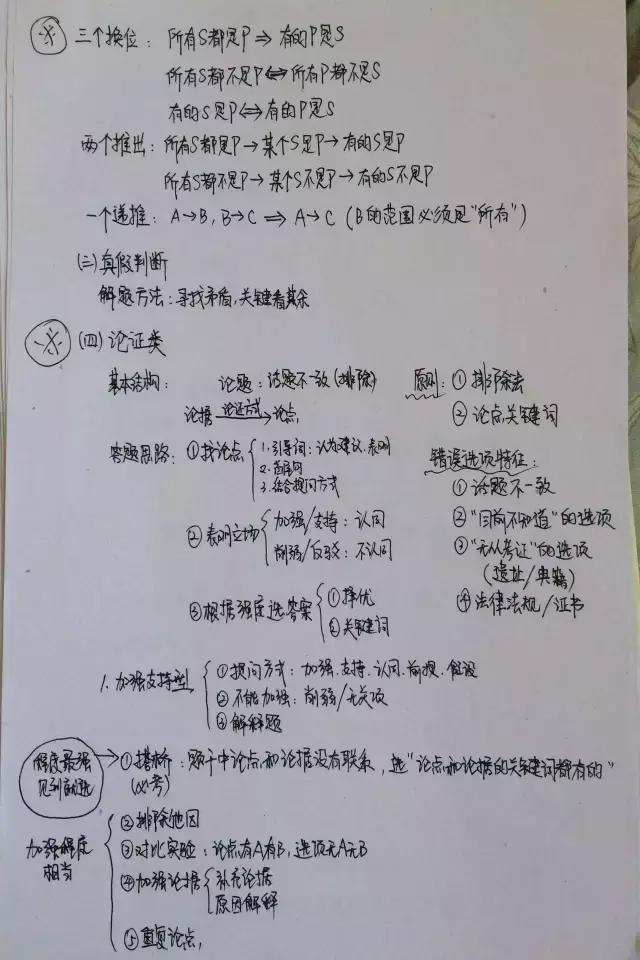 ※ 三个换位：所有S都是P⇒有的P是S
所有S都不是P⇔所有P都不是S
有的S是P⇔有的P是S
两个推出：所有S都是P→某个S是P→有的S是P
所有S都不是P→某个S不是P→有的S不是P
一个递推：A→B，B→C⇒A→C（B的范围必须是“所有”）
(三)真假判断
解题方法：寻找矛盾，关键看其余
※ (四)论证类
基本结构：论题：话题不一致(排除)
论据 论证方式→论点
原则：①排除法
②论点关键词
答题思路：①找论点
1.引导词：认为.建议.表明
2.首尾句
3.结合提问方式
②表明立场
加强/支持：认同
削弱/反驳：不认同
③根据强度选答案
①择优
②关键词
错误选项特征：
①话题不一致
②“目前不知值”的选项
③“无从考证”的选项
(遗址/典籍)
④法律法规/证书
1.加强支持型
①提问方式：加强.支持.认同.前提.假设
②不能加强：削弱/无关项
③解释题
强度最强
见到就选
→①搭桥：题干中论点和论据没有联系，选“论点和论据的关键词都有的”
(必考)
加强强度
相当
②排除他因
③对比实验：论点有A有B，选项无A无B
④加强论据
补充论据
原因解释
⑤重复论点，